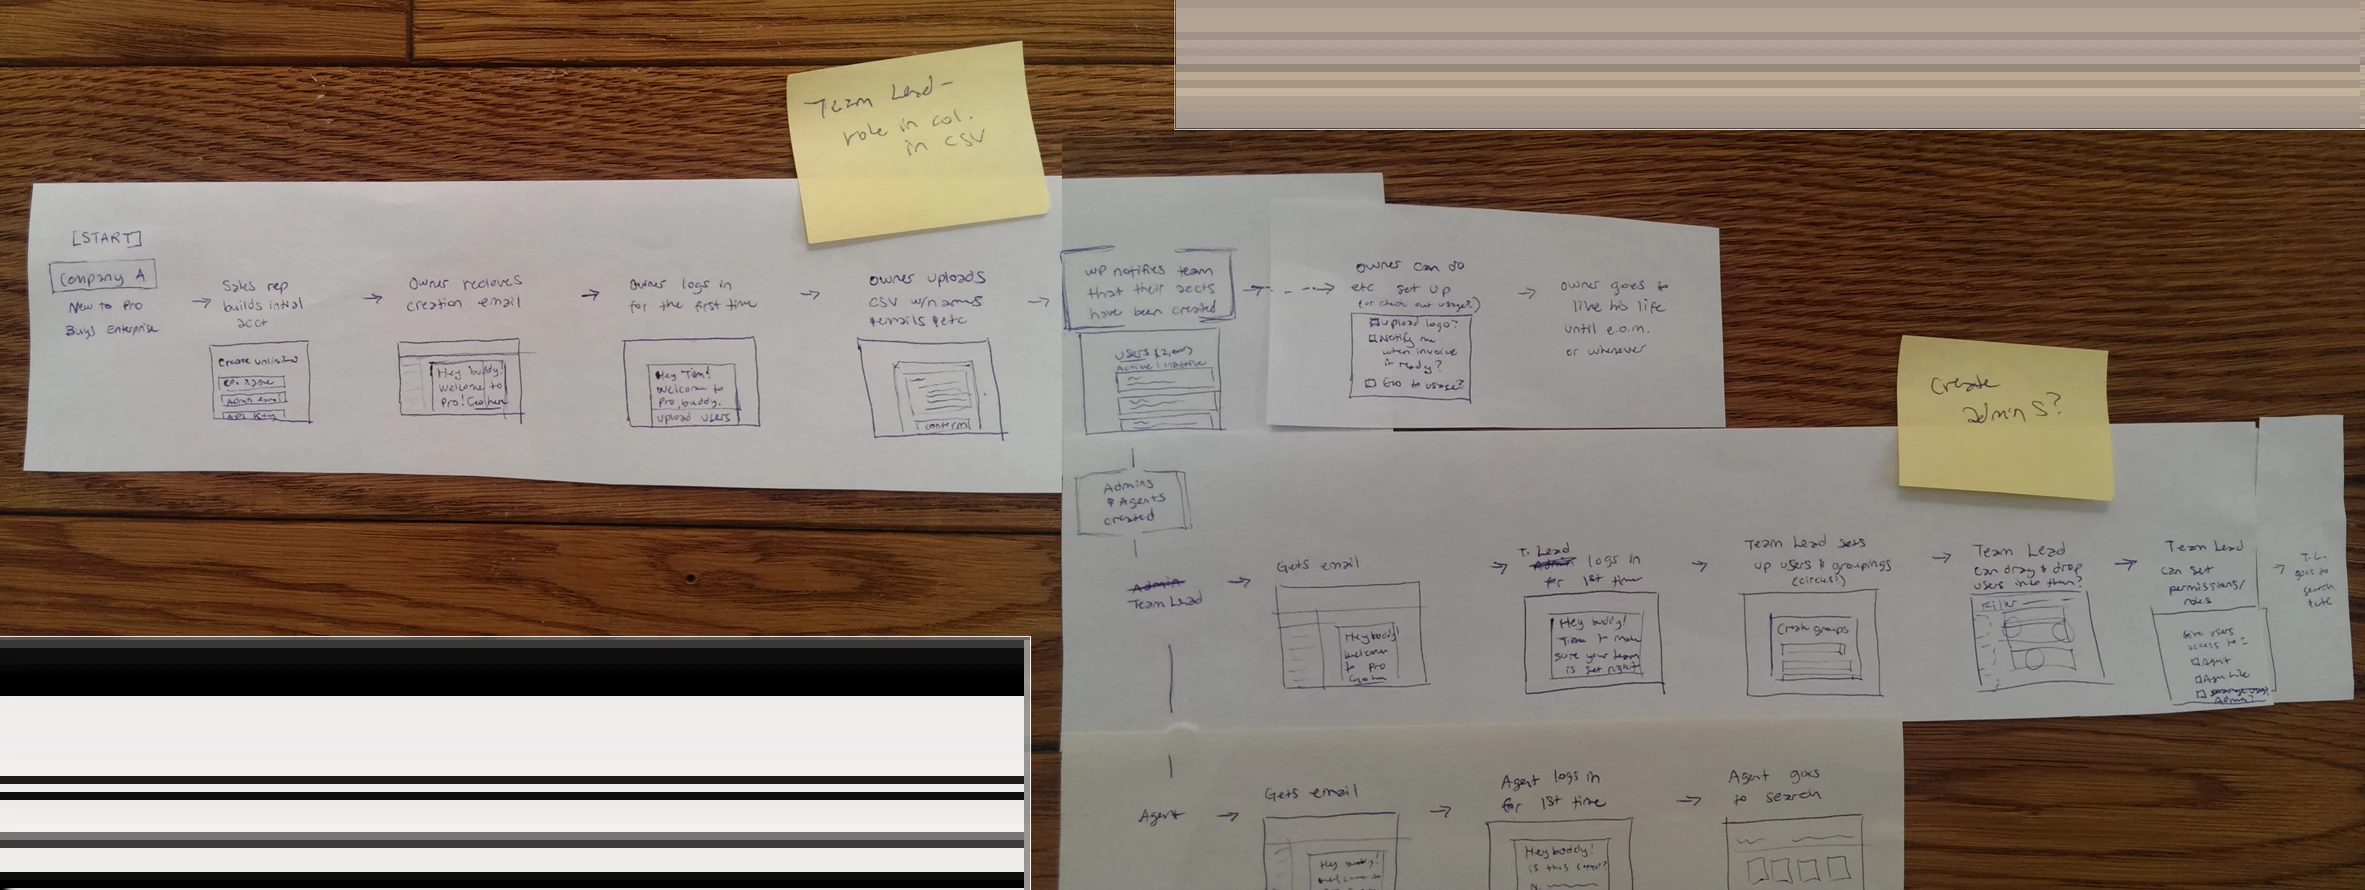 Team Lead -
role in col.
in CSV
[START]
Company A
New to Pro
Buys Enterprise
Sales rep
builds initial
acct
Create unlimited
Co. name
Admin email
API Key
Owner recieves
creation email
Hey buddy!
Welcome to
Pro! Go here
Owner logs in
for the first time
Hey Tim!
Welcome to
Pro, buddy.
Upload users
Owner uploads
CSV w/names
& emails & etc
confirm
WP notifies team
that their accts
have been created
Users (2,000)
Active | Inactive
Owner can do
etc set up
(or check out usage?)
Upload logo?
Notify me
when invoice
is ready?
Go to usage?
Owner goes to
live his life
until e.o.m.
or whenever
Create
admins?
Admins
& Agents
created
Admin
Team Lead
Gets email
Hey buddy!
Welcome
to Pro
Go here
T. Lead
Admin logs in
for 1st time
Hey buddy!
Time to make
sure your team
is set right
Team Lead sets
up users & groupings
(circles?)
Create groups
Team Lead
can drag & drop
users into them?
Filter
Team Lead
can set
permissions/
roles
Give users
access to:
Agent
Admin?
T.L.
goes to
search
Agent
Gets email
Hey buddy!
Agent logs in
for 1st time
Hey buddy!
is this correct?
N.
Agent goes
to search